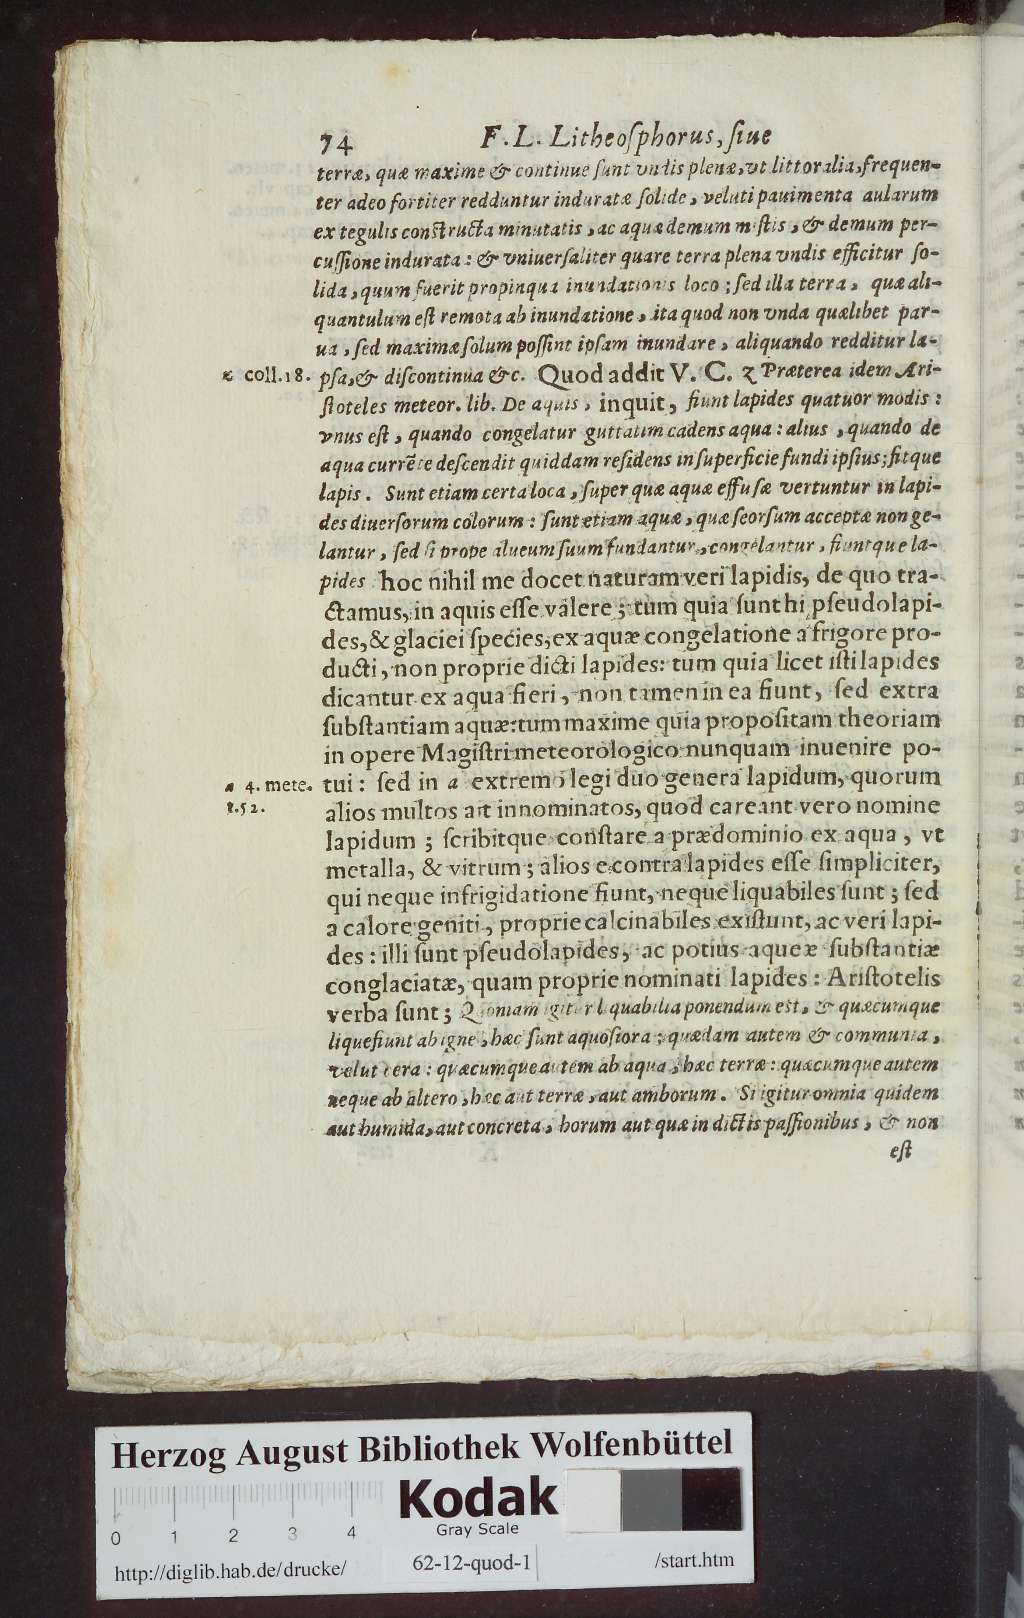 74 F. L. Litheoſphorus, ſiue
terræ, quæ maxime & continue ſunt vndis plenæ, vt littoralia, frequen-
ter adeo fortiter redduntur induratæ ſolide, veluti pauimenta aularum
ex tegulis conſtructa minutatis, ac aquæ demum miſtis, & demum per-
cuſſione indurata: & vniuerſaliter quare terra plena vndis efficitur ſo-
lida, quum fuerit propinqua inundationis loco; ſed illa terra, quæ ali-
quantulum eſt remota ab inundatione, ita quod non vnda quælibet par-
ua, ſed maximæ ſolum poſſint ipſam inundare, aliquando redditur la-
z coll.18. pſa, & diſcontinua &c. Quod addit V. C. z Præterea idem Ari-
ſtoteles meteor. lib. De aquis, inquit, fiunt lapides quatuor modis:
vnus eſt, quando congelatur guttatim cadens aqua: alius, quando de
aqua currẽte deſcendit quiddam reſidens in ſuperficie fundi ipſius; fitque
lapis. Sunt etiam certa loca, ſuper quæ aquæ effuſæ vertuntur in lapi-
des diuerſorum colorum: ſunt etiam aquæ, quæ ſeorſum acceptæ non ge-
lantur, ſed ſi prope alueum ſuum fundantur, congelantur, fiuntque la-
pides hoc nihil me docet naturam veri lapidis, de quo tra-
ctamus, in aquis eſſe valere; tum quia ſunt hi pſeudolapi-
des, & glaciei ſpecies, ex aquæ congelatione a frigore pro-
ducti, non proprie dicti lapides: tum quia licet iſti lapides
dicantur ex aqua fieri, non tamen in ea fiunt, ſed extra
ſubſtantiam aquæ: tum maxime quia propoſitam theoriam
in opere Magiſtri meteorologico nunquam inuenire po-
a 4. mete. tui: ſed in a extremo legi duo genera lapidum, quorum
ſ.52. alios multos ait innominatos, quod careant vero nomine
lapidum; ſcribitque conſtare a prædominio ex aqua, vt
metalla, & vitrum; alios e contra lapides eſſe ſimpliciter,
qui neque infrigidatione fiunt, neque liquabiles ſunt; ſed
a calore geniti, proprie calcinabiles exiſtunt, ac veri lapi-
des: illi ſunt pſeudolapides, ac potius aqueæ ſubſtantiæ
conglaciatæ, quam proprie nominati lapides: Ariſtotelis
verba ſunt; Quoniam igitur liquabilia ponendum eſt, & quæcumque
liquefiunt ab igne, hæc ſunt aquoſiora: quædam autem & communia,
velut cera: quæcumque autem ab aqua, hæc terræ: quæcumque autem
neque ab altero, hæc aut terræ, aut amborum. Si igitur omnia quidem
aut humida, aut concreta, horum aut quæ in dictis paſſionibus, & non
eſt
Herzog August Bibliothek Wolfenbüttel
Kodak
Gray Scale
0 1 2 3 4
http://diglib.hab.de/drucke/ 62-12-quod-1 /start.htm